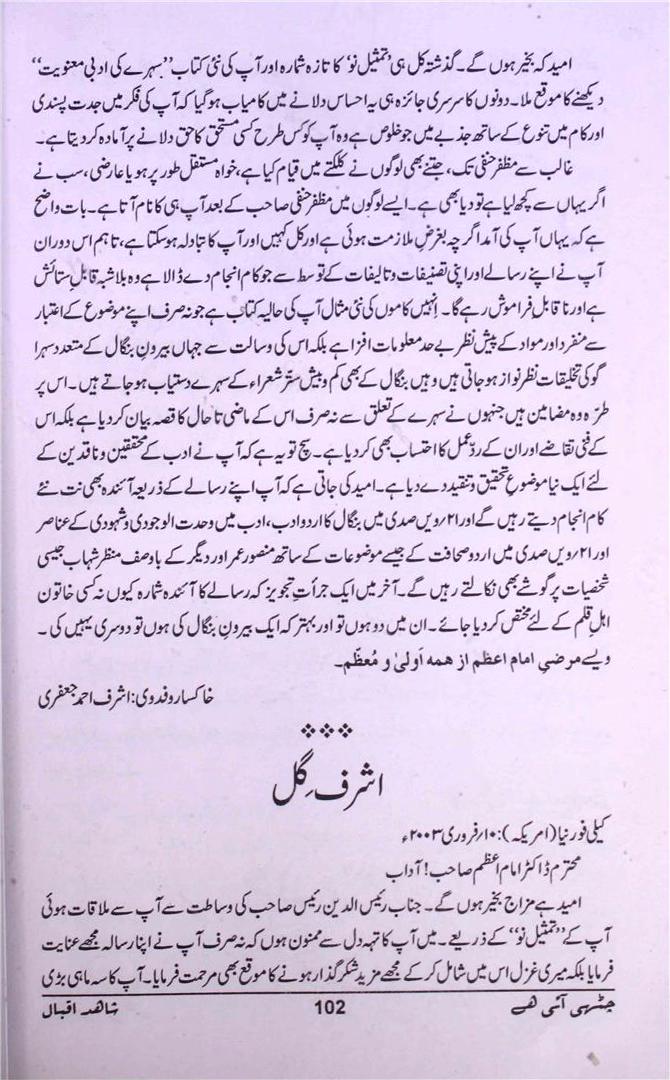 امید کہ بخیر ہوں گے۔ گذشتہ کل ہی ’تمثیل نو‘ کا تازہ شمارہ اور آپ کی نئی کتاب ’’سہرے کی ادبی معنویت‘‘
دیکھنے کا موقع ملا۔ دونوں کا سرسری جائزہ ہی یہ احساس دلانے میں کامیاب ہو گیا کہ آپ کی فکر میں جدت پسندی
اور کام میں تنوع کے ساتھ جذبے میں جو خلوص ہے وہ آپ کو کس طرح کسی مستحق کا حق دلانے پر آمادہ کر دیتا ہے۔
غالب سے مظفر حنفی تک، جتنے بھی لوگوں نے کلکتے میں قیام کیا ہے، خواہ مستقل طور پر ہو یا عارضی، سب نے
اگر یہاں سے کچھ لیا ہے تو دیا بھی ہے۔ ایسے لوگوں میں مظفر حنفی صاحب کے بعد آپ ہی کا نام آتا ہے۔ بات واضح
ہے کہ یہاں آپ کی آمد اگرچہ بغرضِ ملازمت ہوئی ہے اور کل کہیں اور آپ کا تبادلہ ہو سکتا ہے، تاہم اس دوران
آپ نے اپنے رسالے اور اپنی تصنیفات و تالیفات کے توسط سے جو کام انجام دے ڈالا ہے وہ بلا شبہ قابلِ ستائش
ہے اور نا قابلِ فراموش رہے گا۔ انہیں کاموں کی نئی مثال آپ کی حالیہ کتاب ہے جو نہ صرف اپنے موضوع کے اعتبار
سے منفرد اور مواد کے پیش نظر بے حد معلومات افزا ہے بلکہ اس کی وسالت سے جہاں بیرونِ بنگال کے متعدد سہرا
گو کی تخلیقات نظر نواز ہو جاتی ہیں وہیں بنگال کے بھی کم و بیش ستّر شعراء کے سہرے دستیاب ہو جاتے ہیں۔ اس پر
طرّہ وہ مضامین ہیں جنہوں نے سہرے کے تعلق سے نہ صرف اس کے ماضی تا حال کا قصہ بیان کر دیا ہے بلکہ اس
کے فنی تقاضے اور ان کے ردِّعمل کا احتساب بھی کر دیا ہے۔ سچ تو یہ ہے کہ آپ نے ادب کے محققین و ناقدین کے
لئے ایک نیا موضوعِ تحقیق و تنقید دے دیا ہے۔ امید کی جاتی ہے کہ آپ اپنے رسالے کے ذریعہ آئندہ بھی نت نئے
کام انجام دیتے رہیں گے اور ۲۱؍ویں صدی میں بنگال کا اردو ادب، ادب میں وحدت الوجودی و شہودی کے عناصر
اور ۲۱؍ویں صدی میں اردو صحافت کے جیسے موضوعات کے ساتھ منصور عمر اور دیگر کے باوصف منظر شہاب جیسی
شخصیات پر گوشے بھی نکالتے رہیں گے۔ آخر میں ایک جرأتِ تجویز کہ رسالے کا آئندہ شمارہ کیوں نہ کسی خاتون
اہلِ قلم کے لئے مختص کر دیا جائے۔ ان میں دو ہوں تو اور بہتر کہ ایک بیرونِ بنگال کی ہوں تو دوسری یہیں کی۔
ویسے مرضیِ امام اعظم از ہمہ اَولیٰ و مُعظّم۔
خاکسار و فدوی: اشرف احمد جعفری
اشرف گِل
کیلی فورنیا (امریکہ): ۱۰؍فروری ۲۰۰۳ء
محترم ڈاکٹر امام اعظم صاحب! آداب
امید ہے مزاج بخیر ہوں گے۔ جناب رئیس الدین رئیس صاحب کی وساطت سے آپ سے ملاقات ہوئی
آپ کے ’’تمثیل نو‘‘ کے ذریعے۔ میں آپ کا تہہ دل سے ممنون ہوں کہ نہ صرف آپ نے اپنا رسالہ مجھے عنایت
فرمایا بلکہ میری غزل اس میں شامل کر کے مجھے مزید شکر گذار ہونے کا موقع بھی مرحمت فرمایا۔ آپ کا سہ ماہی بڑی
چٹھی آئی ہے 102 شاہد اقبال